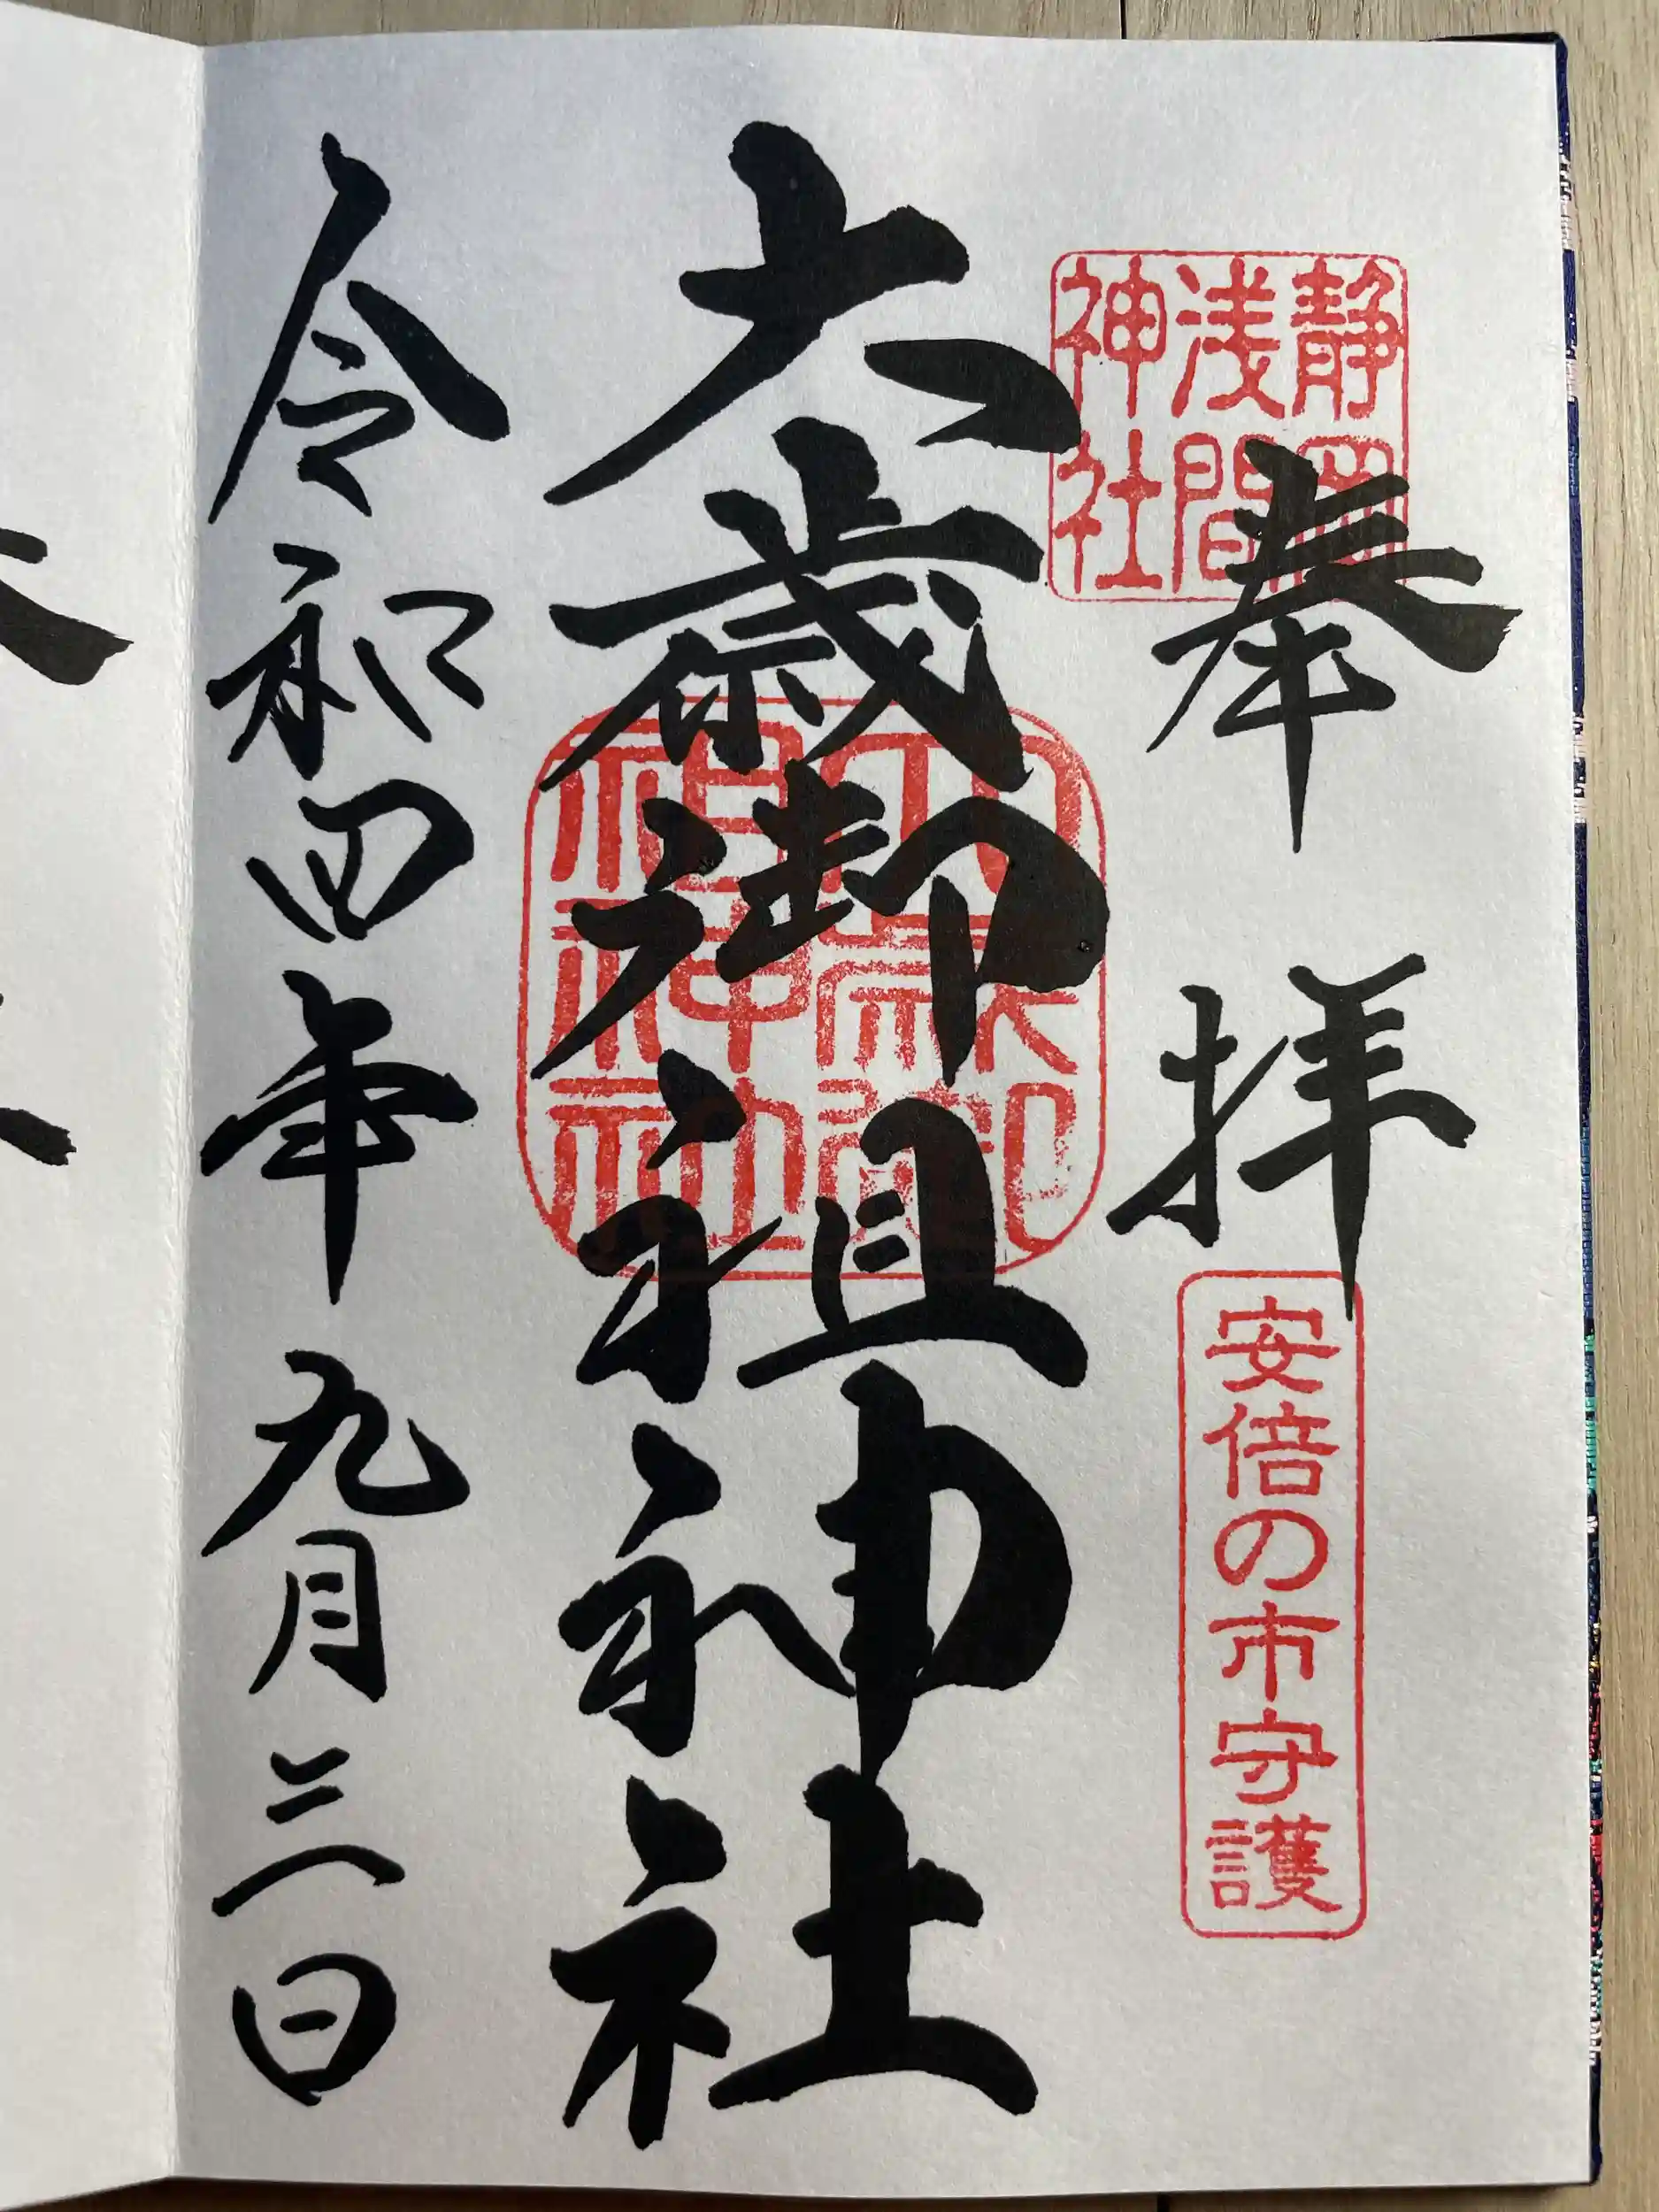 奉拝
静岡
浅間
神社
安倍の市守護
大歳御祖神社
大歳御
祖神社
令和四年九月三日